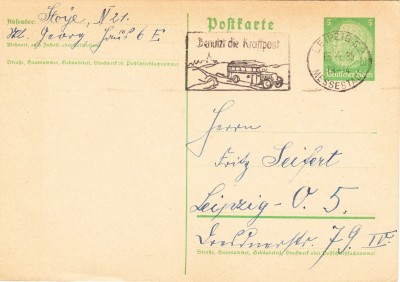 Absender: Stoye, N 21.
Wohnort, auch Zustell- oder Leitpostamt
Straße, Hausnummer, Gebäudeteil, Stockwerk od. Postschließfachnummer
Postkarte
Benutzt die Kraftpost
LEIPZIG
MESSESTADT
5 5
Deutsches Reich
Herrn
Fritz Seifert
Leipzig-O. 5.
Dresdnerstr. 79 IV.
Straße, Hausnummer, Gebäudeteil, Stockwerk oder Postschließfachnummer